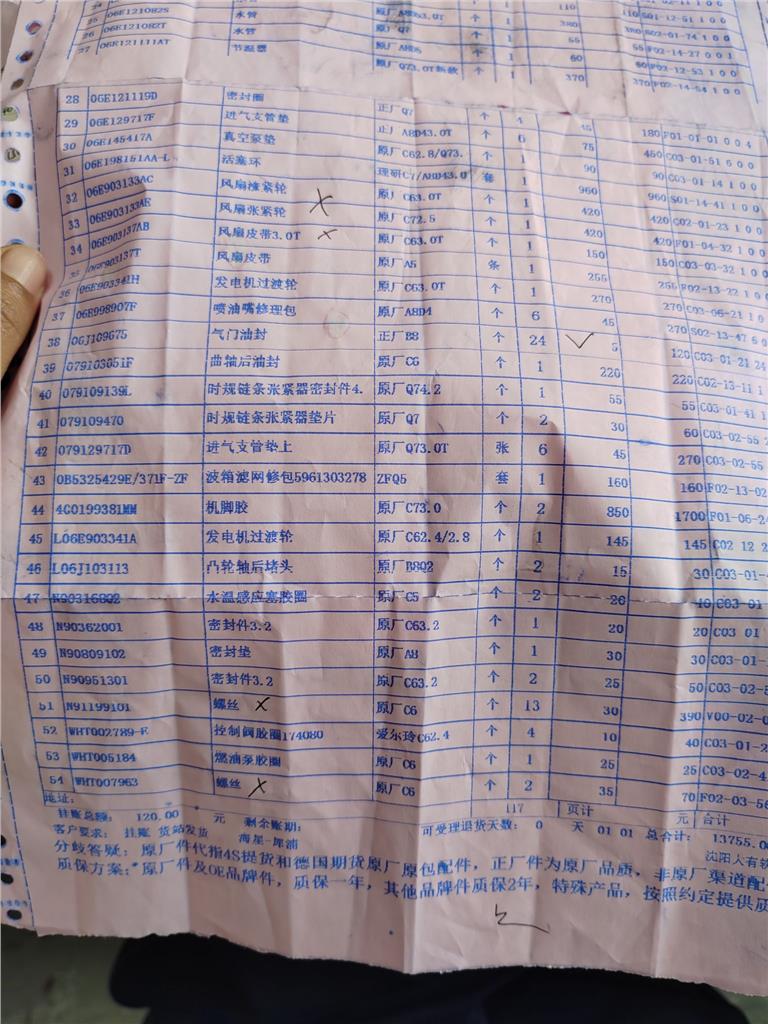 06E121082S 水管 原厂A8D3.0T 个 1 110 110 S01-12-51 1 0 0
26 06E121082T 水管 原厂Q7 个 1 380 380 S02-01-74 1 0 0
27 06E121111AT 节温器 原厂A8D5 个 1 55 55 F02-14-27 0 0 1
原厂Q73.0T新款 个 1 60 60 F02-12-53 1 0 0
370 370 F02-14-54 1 0 0
28 06E121119D 密封圈 正厂Q7 个 4 45 180 F01-01-01 0 0 4
29 06E129717F 进气支管垫 正厂A8D43.0T 个 6 75 450 C03-01-51 6 0 0
30 06E145417A 真空泵垫 原厂C62.8/Q73. 个 1 90 90 C03-01-14 1 0 0
31 06E198151AA-L 活塞环 理研C7/A8D43.0 套 1 960 960 S01-14-41 1 0 0
32 06E903133AC 风扇涨紧轮 原厂C63.0T 个 1 420 420 C02-01-23 1 0 0
33 06E903133AE 风扇张紧轮 原厂C72.5 个 1 420 420 F01-04-32 1 0 0
34 06E903137AB 风扇皮带3.0T 原厂C63.0T 个 1 150 150 C03-03-32 1 0 0
35 06E903137T 风扇皮带 原厂A5 条 1 255 255 F02-13-22 1 0 0
36 06E903341H 发电机过渡轮 原厂C63.0T 个 1 270 270 C03-06-21 1 0 0
37 06E998907F 喷油嘴修理包 原厂A8D4 个 6 45 270 S02-13-47 6 0
38 06J109675 气门油封 正厂B8 个 24 5 120 C03-01-21 24
39 079103051F 曲轴后油封 原厂C6 个 1 220 220 C02-13-11 1
40 079109139L 时规链条张紧器密封件4. 原厂Q74.2 个 1 55 55 C03-01-41 1
41 079109470 时规链条张紧器垫片 原厂Q7 个 2 30 60 C03-02-55 2
42 079129717D 进气支管垫上 原厂Q73.0T 张 6 45 270 C03-02-55
43 0B5325429E/371F-ZF 波箱滤网修包5961303278 ZFQ5 套 1 160 160 F02-13-02
44 4G0199381MM 机脚胶 原厂C73.0 个 2 850 1700 F01-06-24
45 L06E903341A 发电机过渡轮 原厂C62.4/2.8 个 1 145 145 C02 12 2
46 L06J103113 凸轮轴后堵头 原厂B8Q2 个 2 15 30 C03-01-
47 N90316802 水温感应塞胶圈 原厂C5 个 2 20 40 C03 01
48 N90362001 密封件3.2 原厂C63.2 个 1 20 20 C03 01
49 N90809102 密封垫 原厂A8 个 1 30 30 C03-01-
50 N90951301 密封件3.2 原厂C63.2 个 2 25 50 C03-02-
51 N91199101 螺丝 原厂C6 个 13 30 390 V00-02-0
52 WHT002789-E 控制阀胶圈174080 爱尔玲C62.4 个 4 10 40 C03-01-2
53 WHT005184 燃油泵胶圈 原厂C6 个 1 25 25 C03-02-4
54 WHT007963 螺丝 原厂C6 个 2 35 70 F02-03-56
地址: 117 页计 合计
挂账总额: 120.00 元 剩余账期: 可受理退货天数: 0 天 01 01 总合计: 13755.0 元
客户要求: 挂账 货站发货 海星-库浦 沈阳人有铁
分歧答疑: 原厂件代指4S提货和德国期货原厂原包配件, 正厂件为原厂品质, 非原厂渠道配
质保方案:*原厂件及OE品牌件, 质保一年, 其他品牌件质保2年, 特殊产品, 按照约定提供质